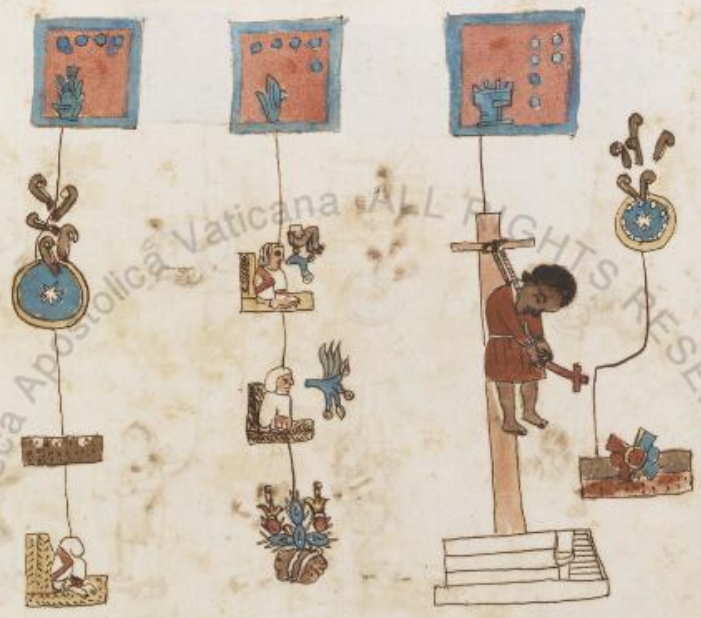 Apostolica Vaticana ALL RIGHTS RESE